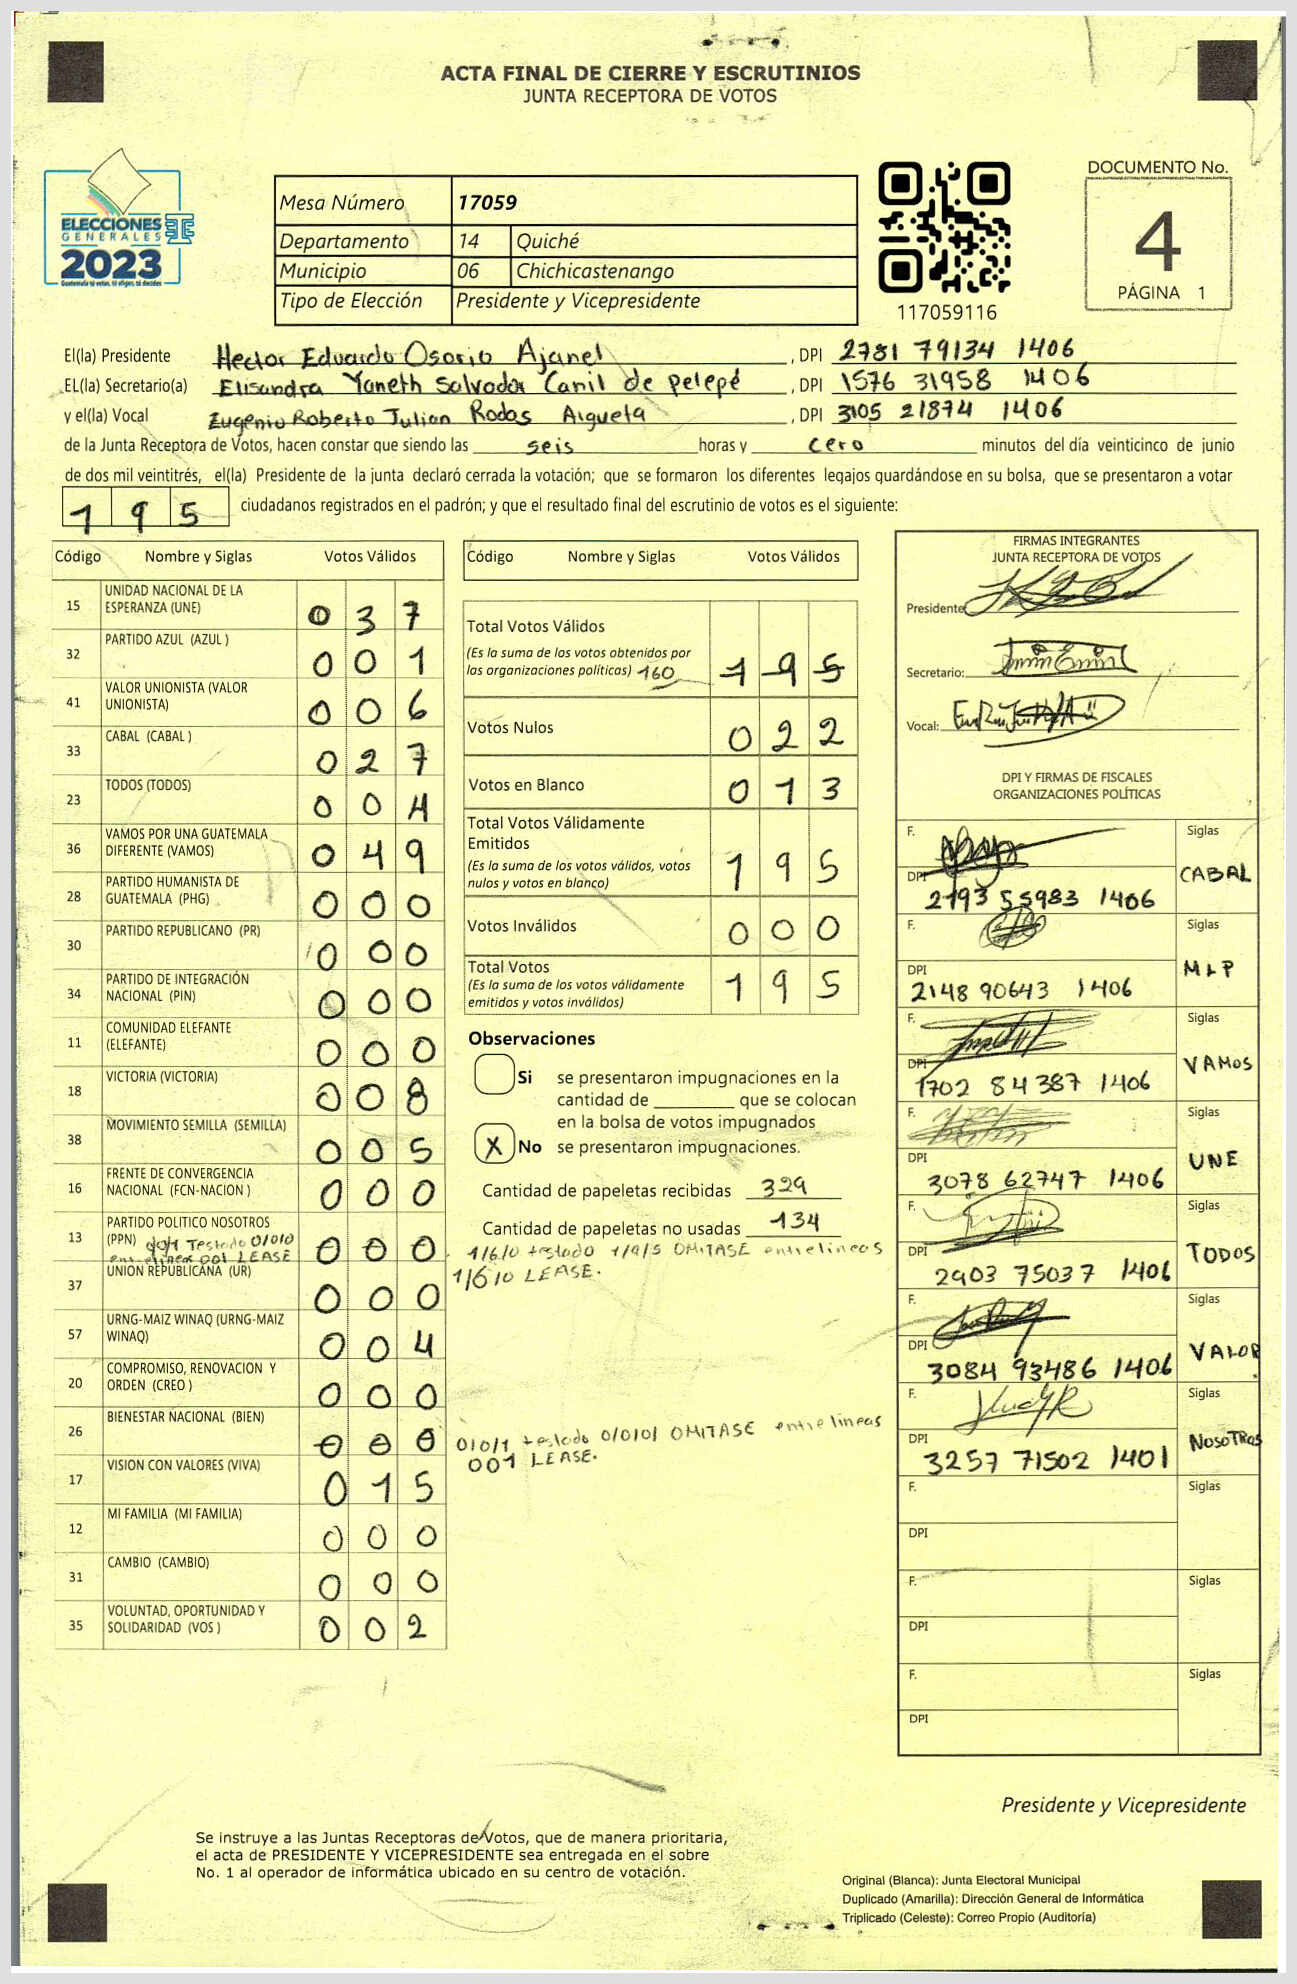 ACTA FINAL DE CIERRE Y ESCRUTINIOS
JUNTA RECEPTORA DE VOTOS
ELECCIONES
GENERALES
2023
Guatemala tú votas, tú eliges, tú decides
Mesa Número 17059
Departamento 14 Quiché
Municipio 06 Chichicastenango
Tipo de Elección Presidente y Vicepresidente
117059116
DOCUMENTO No.
4
PÁGINA 1
El(la) Presidente Hector Eduardo Osorio Ajanel, DPI 2781 79134 1406
EL(la) Secretario(a) Elisandra Yaneth Salvador Canil de pelepé, DPI 1576 31958 1406
y el(la) Vocal Eugenio Roberto Julian Rodas Aigueta, DPI 3105 21874 1406
de la Junta Receptora de Votos, hacen constar que siendo las seis horas y cero minutos del día veinticinco de junio
de dos mil veintitrés, el(la) Presidente de la junta declaró cerrada la votación; que se formaron los diferentes legajos guardándose en su bolsa, que se presentaron a votar
195 ciudadanos registrados en el padrón; y que el resultado final del escrutinio de votos es el siguiente:
Código Nombre y Siglas Votos Válidos
15 UNIDAD NACIONAL DE LA
ESPERANZA (UNE) 037
32 PARTIDO AZUL (AZUL ) 001
41 VALOR UNIONISTA (VALOR
UNIONISTA) 006
33 CABAL (CABAL ) 027
23 TODOS (TODOS) 004
36 VAMOS POR UNA GUATEMALA
DIFERENTE (VAMOS) 049
28 PARTIDO HUMANISTA DE
GUATEMALA (PHG) 000
30 PARTIDO REPUBLICANO (PR) 000
34 PARTIDO DE INTEGRACIÓN
NACIONAL (PIN) 000
11 COMUNIDAD ELEFANTE
(ELEFANTE) 000
18 VICTORIA (VICTORIA) 008
38 MOVIMIENTO SEMILLA (SEMILLA) 005
16 FRENTE DE CONVERGENCIA
NACIONAL (FCN-NACION ) 000
13 PARTIDO POLITICO NOSOTROS
(PPN) 001 Testado 0/0/0 000
entrelinea 001 LEASE
37 UNION REPUBLICANA (UR) 000
57 URNG-MAIZ WINAQ (URNG-MAIZ
WINAQ) 004
20 COMPROMISO, RENOVACION Y
ORDEN (CREO ) 000
26 BIENESTAR NACIONAL (BIEN) 000
17 VISION CON VALORES (VIVA) 015
12 MI FAMILIA (MI FAMILIA) 000
31 CAMBIO (CAMBIO) 000
35 VOLUNTAD, OPORTUNIDAD Y
SOLIDARIDAD (VOS ) 002
Código Nombre y Siglas Votos Válidos
Total Votos Válidos
(Es la suma de los votos obtenidos por
las organizaciones políticas) 160 195
Votos Nulos 022
Votos en Blanco 013
Total Votos Válidamente
Emitidos
(Es la suma de los votos válidos, votos
nulos y votos en blanco) 195
Votos Inválidos 000
Total Votos
(Es la suma de los votos válidamente
emitidos y votos inválidos) 195
Observaciones
Si se presentaron impugnaciones en la
cantidad de ________ que se colocan
en la bolsa de votos impugnados
X No se presentaron impugnaciones.
Cantidad de papeletas recibidas 329
Cantidad de papeletas no usadas 134
1/6/0 testado 1/9/5 OMITASE entrelineas
1/6/0 LEASE.
0/0/1 testado 0/0/0/ OMITASE entrelineas
001 LEASE.
FIRMAS INTEGRANTES
JUNTA RECEPTORA DE VOTOS
Presidente:
Secretario:
Vocal:
DPI Y FIRMAS DE FISCALES
ORGANIZACIONES POLÍTICAS
F. Siglas
DPI 2193 55983 1406 CABAL
F. Siglas
DPI 2148 90643 1406 MLP
F. Siglas
DPI 1702 84387 1406 VAMOS
F. Siglas
DPI 3078 62747 1406 UNE
F. Siglas
DPI 2903 75037 1406 TODOS
F. Siglas
DPI 3084 93486 1406 VALOR
F. Siglas
DPI 3257 71502 1401 NOSOTROS
F. Siglas
DPI
F. Siglas
DPI
F. Siglas
DPI
Presidente y Vicepresidente
Se instruye a las Juntas Receptoras de Votos, que de manera prioritaria,
el acta de PRESIDENTE Y VICEPRESIDENTE sea entregada en el sobre
No. 1 al operador de informática ubicado en su centro de votación.
Original (Blanca): Junta Electoral Municipal
Duplicado (Amarilla): Dirección General de Informática
Triplicado (Celeste): Correo Propio (Auditoría)